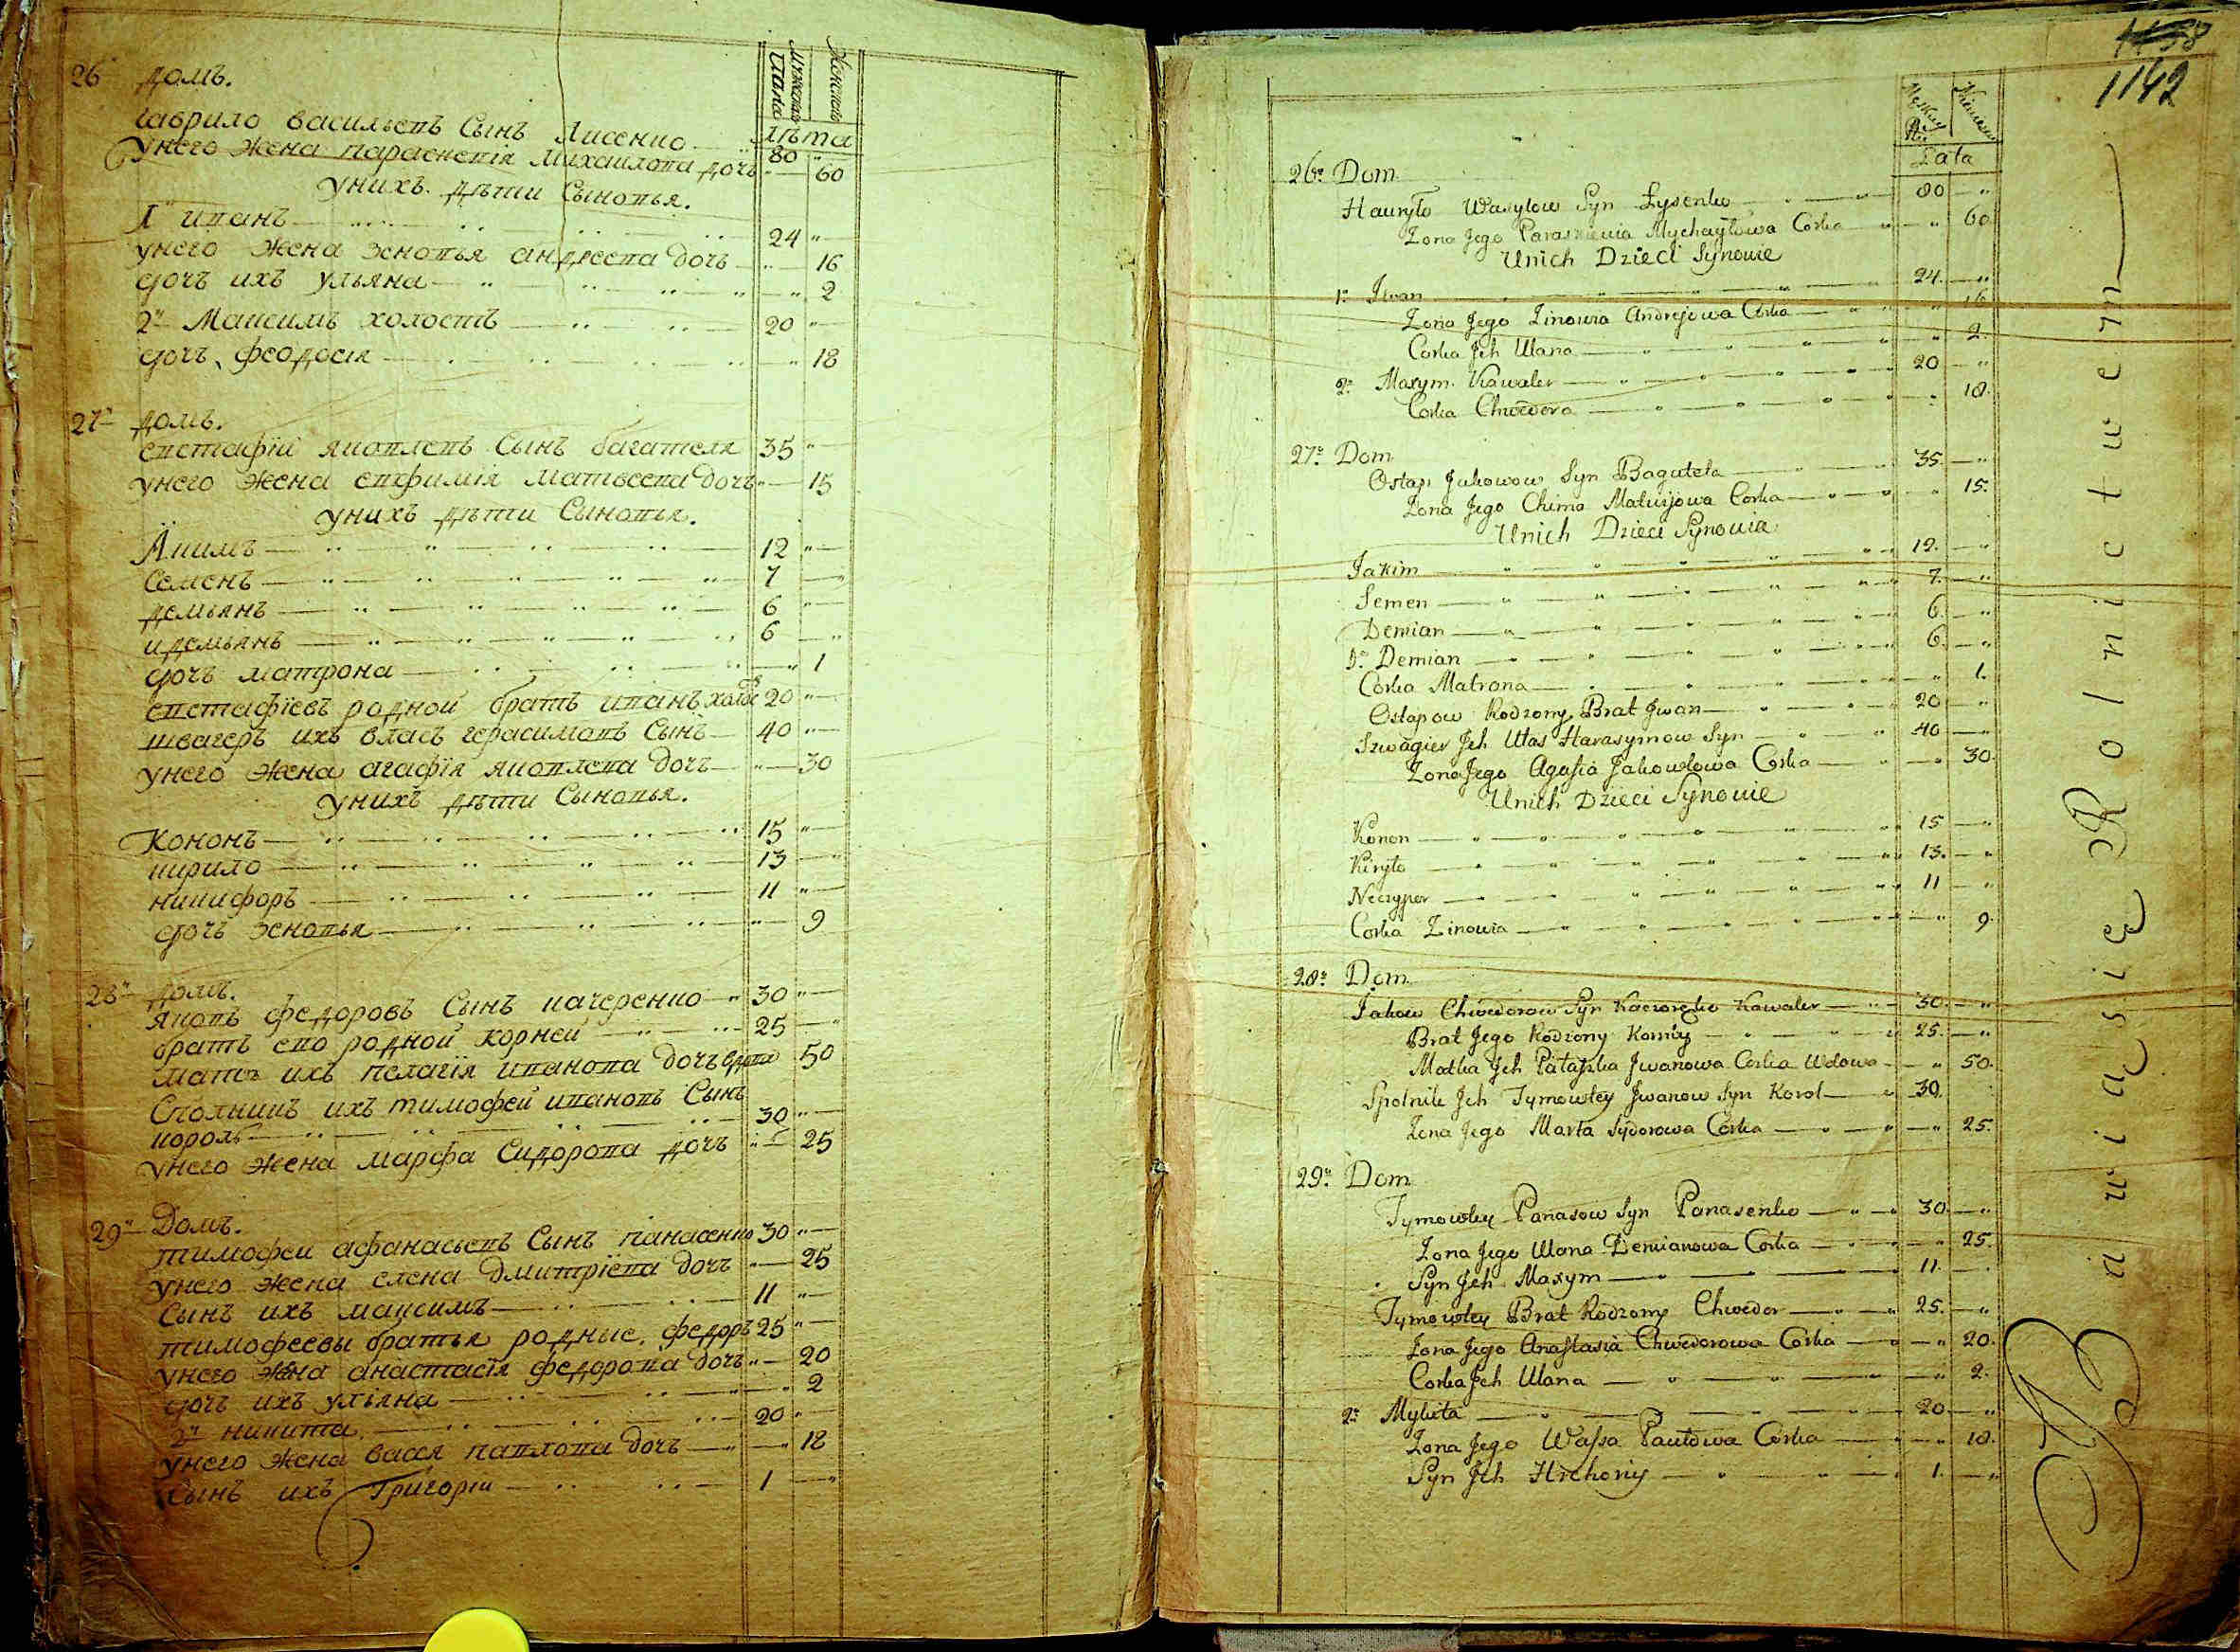 Мужеска
пола
Женска
лѣта
26й домъ.
гаврило васильевъ Сынъ лисенко 80 "
у него жена параскевія михаилова дочь " 60
у нихъ дѣти Сыновья.
1й иванъ 24 "
у него жена зеновья андреева дочь " 16
дочь ихъ ульяна " 2
2й Максимъ холостъ 20 "
дочь феодосія " 18
27й домъ.
евстафій яковлевъ Сынъ багателя 35 "
у него жена евфимія матвеева дочь " 15
у нихъ дѣти Сыновья.
Якимъ 12 "
Семенъ 7 "
демьянъ 6 "
и демьянъ 6 "
дочь матрона " 1
евстафіевъ родной братъ иванъ холос 20 "
швагеръ ихъ власъ герасимовъ Сынъ 40 "
у него жена агафія яковлева дочь " 30
у нихъ дѣти Сыновья.
Кононъ 15 "
кирило 13 "
никифоръ 11 "
дочь зеновья " 9
28й домъ.
яковъ федоровъ Сынъ качеренко 30 "
братъ его родной корней 25 "
мать ихъ пелагія иванова дочь вдова 50
Спольникъ ихъ тимофей ивановъ Сынъ
король 30 "
у него жена марфа Сидорова дочь " 25
29й Домъ.
тимофеи афанасьевъ Сынъ панасенко 30 "
у него жена елена дмитріева дочь " 25
Сынъ ихъ максимъ 11 "
тимофеевы братья родные, федоръ 25 "
у него жена анастасія федорова дочь " 20
дочь ихъ ульяна " 2
2й никита 20 "
у него жена васся павлова дочь " 18
Сынъ ихъ Григоріи 1 "
1142
Lata
26o Dom
Hauryło Wasylow Syn Łysenko 80 "
Zona Jego Paraskiewia Mychayłowa Corka " 60
Unich Dzieci Synowie
1o Iwan 24 "
Zona Jego Zinowia Andrejowa Corka " 16
Corka Jch Ulana " 2
2o Maxym Kawaler 20 "
Corka Chwedora " 18
27o Dom
Ostap Jakowow Syn Bagatela 35 "
Zona Jego Chima Matwijowa Corka " 15
Unich Dzieci Synowia
Jakim 12 "
Semen 7 "
Demian 6 "
Demian 6 "
Corka Matrona " 1
Ostapow Rodzony Brat Jwan 20 "
Szwagier Jch Ułas Harasymow Syn 40 "
Zona Jego Agafia Jakowłowa Corka " 30
Unich Dzieci Synowie
Konon 15 "
Kiryło 13 "
Neczypor 11 "
Corka Zinowia " 9
28o Dom
Jakow Chwedorow Syn Kaczorenko Kawaler 30 "
Brat Jego Rodzony Korniy 25 "
Matka Jch Pałażka Jwanowa Corka Wdowa " 50
Spolnik Jch Tymowtey Jwanow Syn Korol 30
Zona Jego Marta Sydorowa Corka " 25
29o Dom
Tymowtey Panasow Syn Panasenko 30 "
Zona Jego Ulana Demianowa Corka " 25
Syn Jch Maxym 11 "
Tymowtey Brat Rodzony Chwedor 25 "
Zona Jego Anastasia Chwedorowa Corka " 20
Corka Jch Ulana " 2
2o Mykita 20 "
Zona Jego Wassa Paułowa Corka " 18
Syn Jch Hrehoriy 1 "
wiąsię Rolnictwem